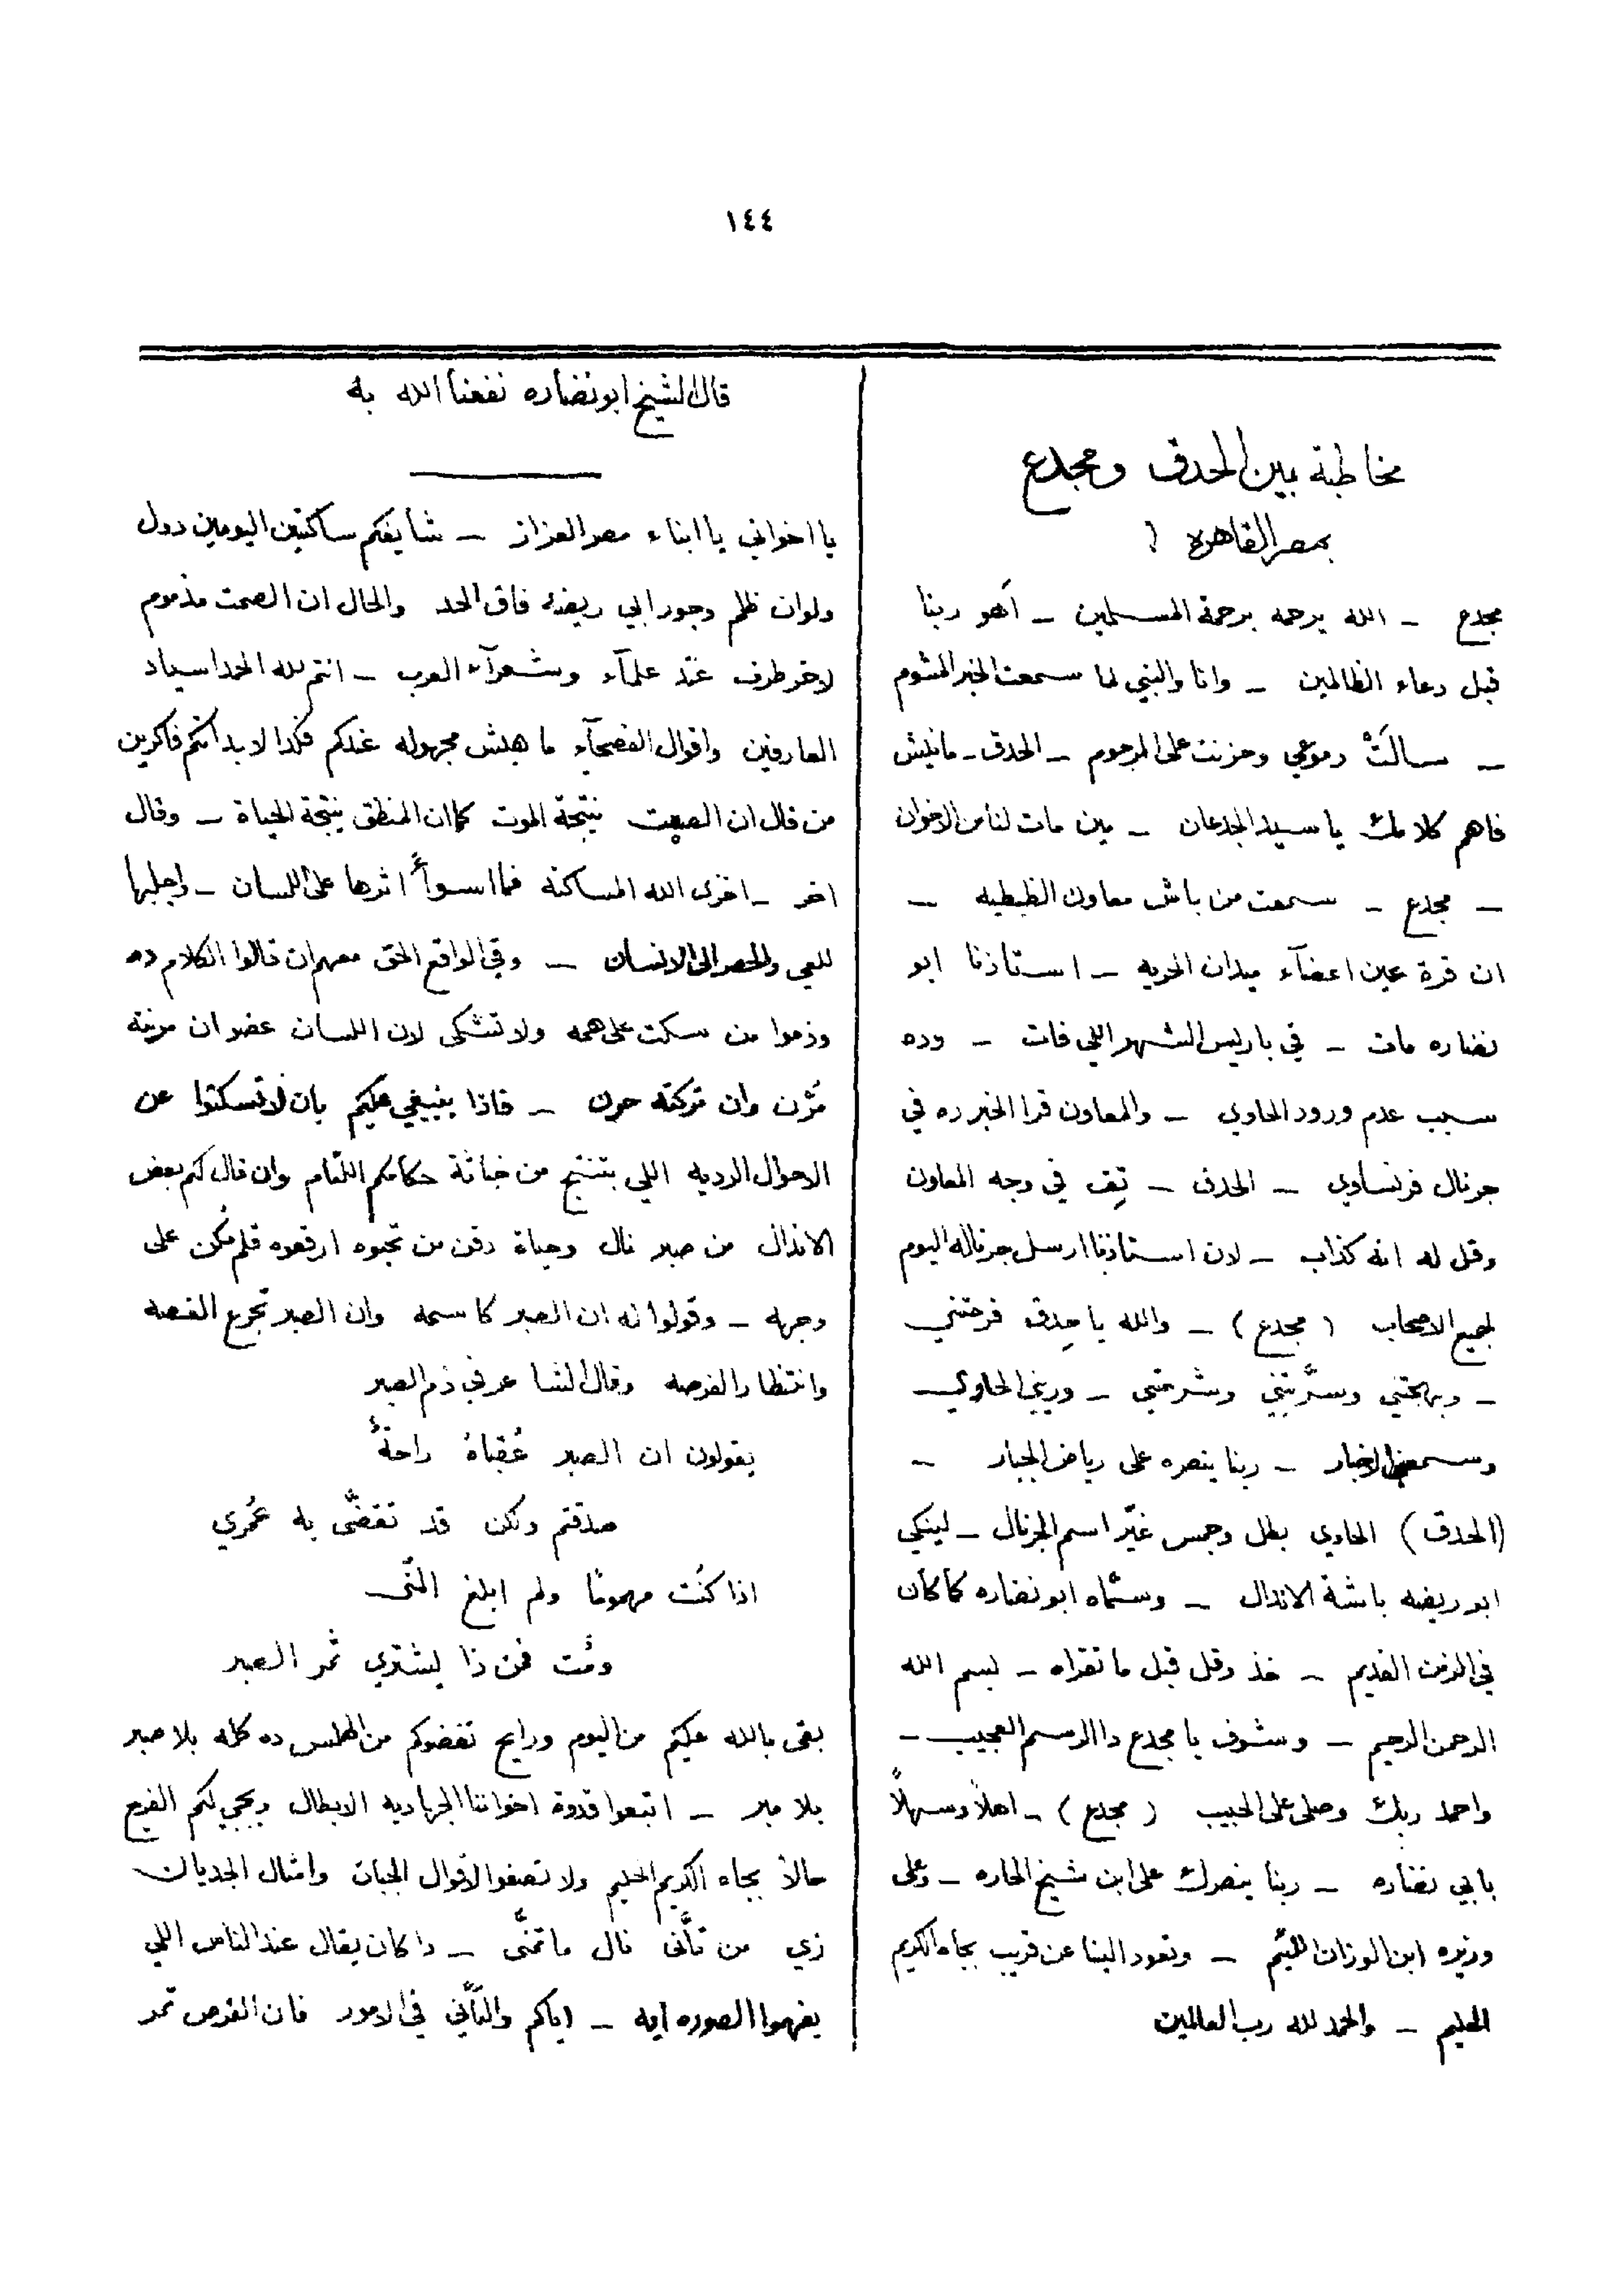 ١٤٤
مخاطبة بين الحدق ومجدع
بمصر القاهره
مجدع ـ الله يرحمه برحمة المسلمين ـ اهو ربنا
قبل دعاء الظالمين ـ وانا والنبي لما سمعت الخبر المشوم
ـ سالَتْ دموعي وحزنت على المرحوم ـ الحدق ـ مانيش
فاهم كلامك يا سيد الجدعان ـ مين مات لنا من الاخوان
ـ مجدع ـ سمعت من باش معاون الظبطيه ـ
ان قرة عين اعضآء ميدان الحريه ـ استاذنا ابو
نضاره مات ـ في باريس الشهر اللي فات ـ وده
سبب عدم ورود الحاوي ـ والمعاون قرا الخبر ده في
جرنال فرنساوي ـ الحدق ـ تِف في وجه المعاون
وقل له انه كذاب ـ لان استاذنا ارسل جرناله اليوم
لجميع الاصحاب ( مجدع ) ـ والله يا حِدق فرحتني
ـ وبهجتني وسرَّيتني وشرحتني ـ وريني الحاوي
وسمعني الاخبار ـ ربنا ينصره على رياض الجبار ـ
(الحدق) الحاوي بطل وحمس غيّر اسم الجرنال ـ لينكي
ابو ريضه باشة الاندال ـ وسمّاه ابو نضاره كما كان
في الزمن القديم ـ خذ وقل قبل ما تقراه ـ بسم الله
الرحمن الرحيم ـ وشوف يا مجدع دا الرسم العجيب ـ
واحمد ربك وصلى على الحبيب ( مجدع ) ـ اهلاً وسهلاً
بابي نضاره ـ ربنا ينصرك على ابن شيخ الحاره ـ وعلى
وزيره ابن الوزان اللئيم ـ وتعود الينا عن قريب بجاه الكريم
الحليم ـ والحمد لله رب العالمين
قال الشيخ ابو نضاره نفعنا الله به
يا اخواني يا ابناء مصر العزاز ـ شايفكم ساكتين اليومين دول
ولو ان ظلم وجور ابي ريضه فاق الحد والحال ان الصمت مذموم
لاخر طرف عند علمآء وشعرآء العرب ـ انتم لله الحمد اسياد
العارفين واقوال الفصحآء ما هيش مجهوله عندكم فلذا لابد انكم فاكرين
من قال ان الصمت نتيجة الموت كما ان المنطق نتيجة الحياة ـ وقال
اخر ـ اخزى الله المساكنه فما اسوأ اثرها على اللسان ـ واجلبها
للعي والحصر الى الانسان ـ وفي الواقع الحق معهم ان قالوا الكلام ده
وذموا من سكت على همه ولا تشكى لان اللسان عضو ان مرنته
مَرَن وان تركته حرن ـ فاذا ينبغي عليكم بان لا تسكتوا عن
الاحوال الرديه اللي بتنتج من خباثة حكامكم اللئام وان قال لكم بعض
الاندال من صبر نال وحياة دقن من تحبوه ارقعوه قلم سُكن على
وجهه ـ وقولوا له ان الصبر كاسمه وان الصبر تجرع الغصه
وانتظار الفرصه وقال الشاعر في ذم الصبر
يقولون ان الصبر عُقباهُ راحةٌ
صدقتم ولكن قد تقضَّى به عُمري
اذا كنت مهمومًا ولم ابلغ المنى
ومُت فمن ذا يشتري ثمر الصبر
بقى بالله عليكم من اليوم ورايح تفضوكم من الهلس ده كله بلا صبر
بلا مبر ـ اتبعوا قدوة اخواننا الجهاديه الابطال ويجي لكم الفرج
حالاً بجاه الكريم الحليم ولا تصغوا لاقوال الجبان وامثال الجديان
زي من تأنّى نال ما تمنّى ـ دا كان يقال عند الناس اللي
يفهموا الصوره ايه ـ اياكم والتأني في الامور فان الفرص تمر